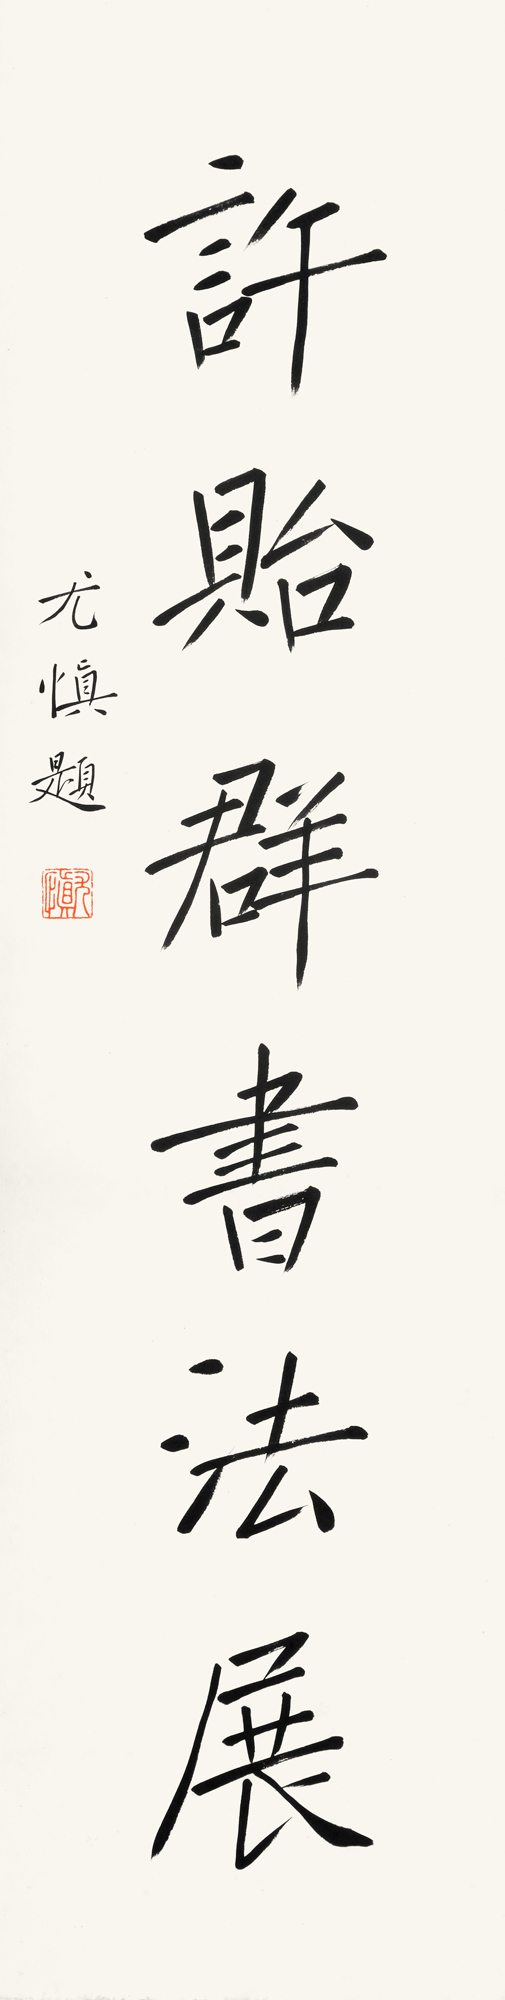 許貽群書法展
尤慎題